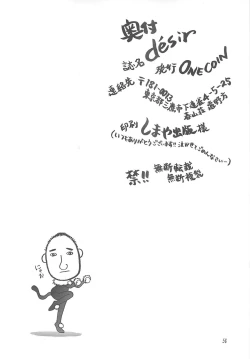 奥付
誌名 désir
発行 ONECOIN
連絡先 〒181-0013
東京都三鷹市下連雀4-5-25
印刷 しまや出版 様
(いつもありがとうございます!! 泣かせてごめんなさい…)
禁!! 無断転載
無断複製